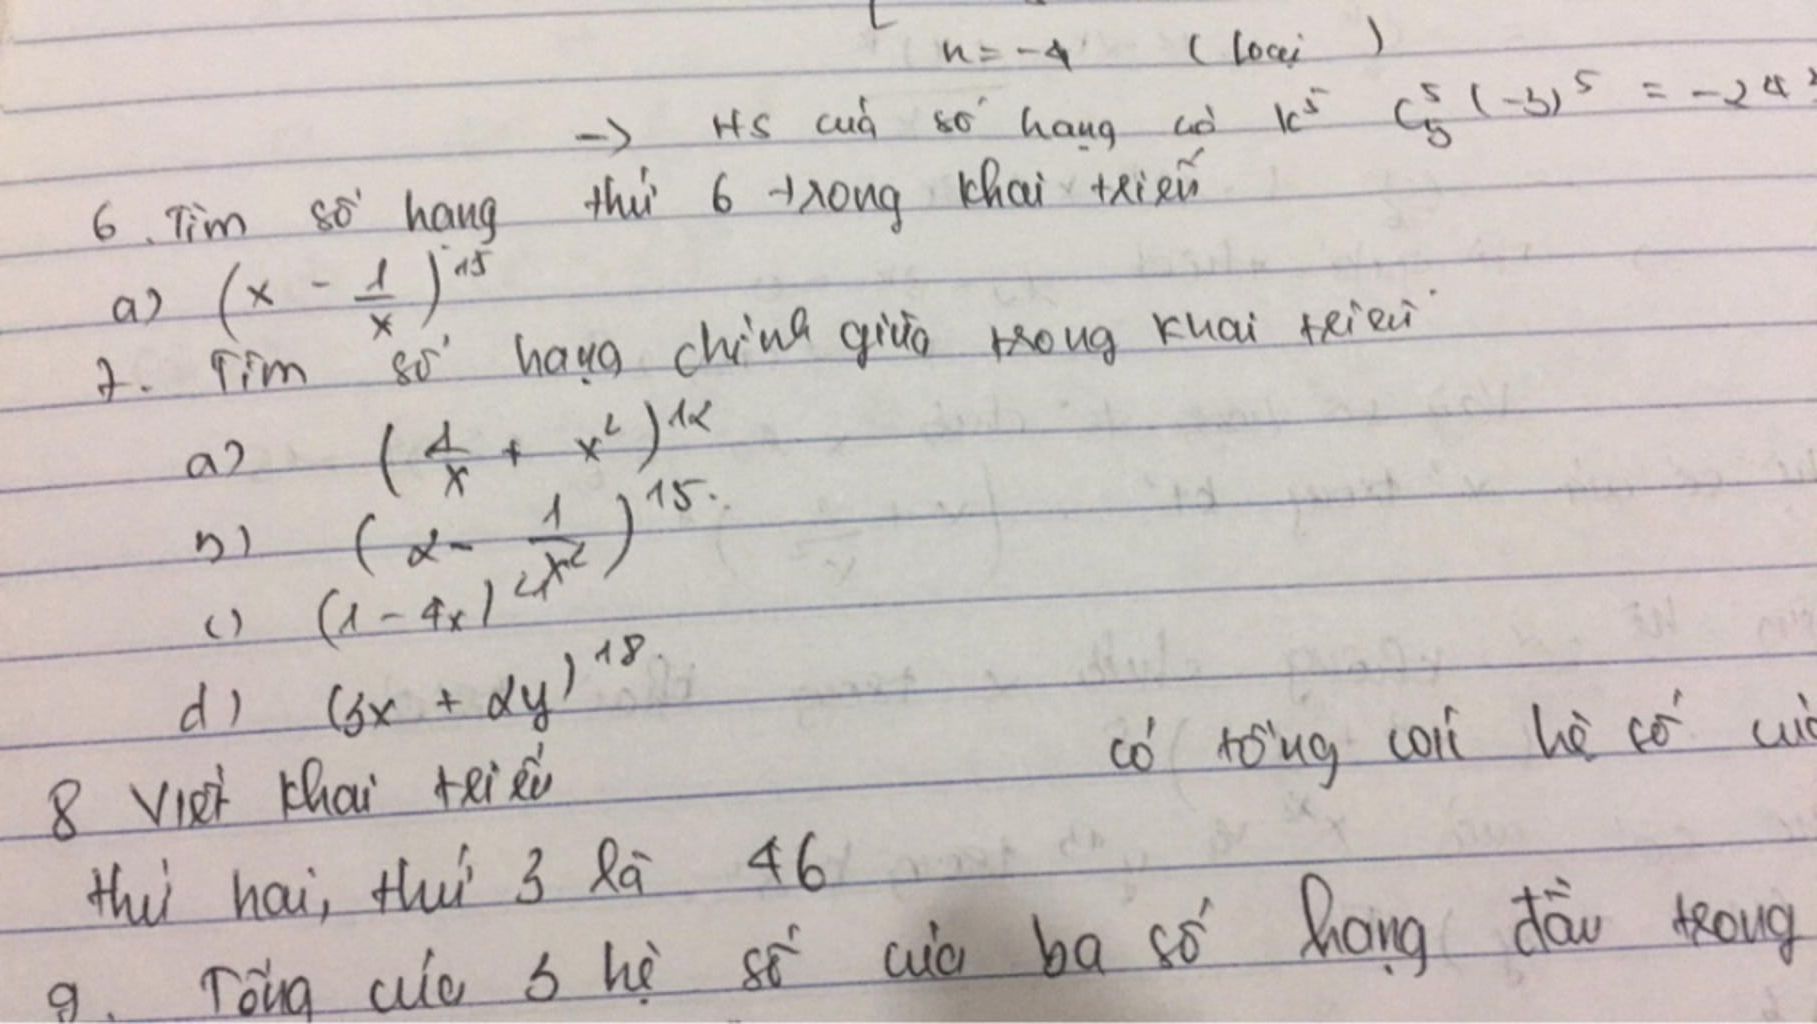 n = -4 (loại)
-> HS của số hạng có k⁵ C₅⁵ (-3)⁵ = -24
6. Tìm số hạng thứ 6 trong khai triển
a) (x - 1/x)¹⁵
7. Tìm số hạng chính giữa trong khai triển
a) (1/x + x²)¹²
b) (2 - 1/x²)¹⁵
c) (1 - 4x)
d) (3x + 2y)¹⁸
8 Viết khai triển có tổng các hệ số
thứ hai, thứ 3 là 46
9. Tổng của 3 hệ số của ba số hạng đầu trong